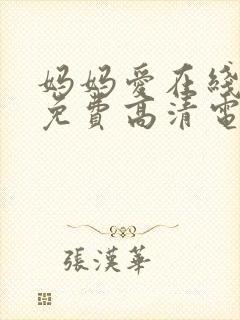 妈妈爱在线
免费高清电
張漢華